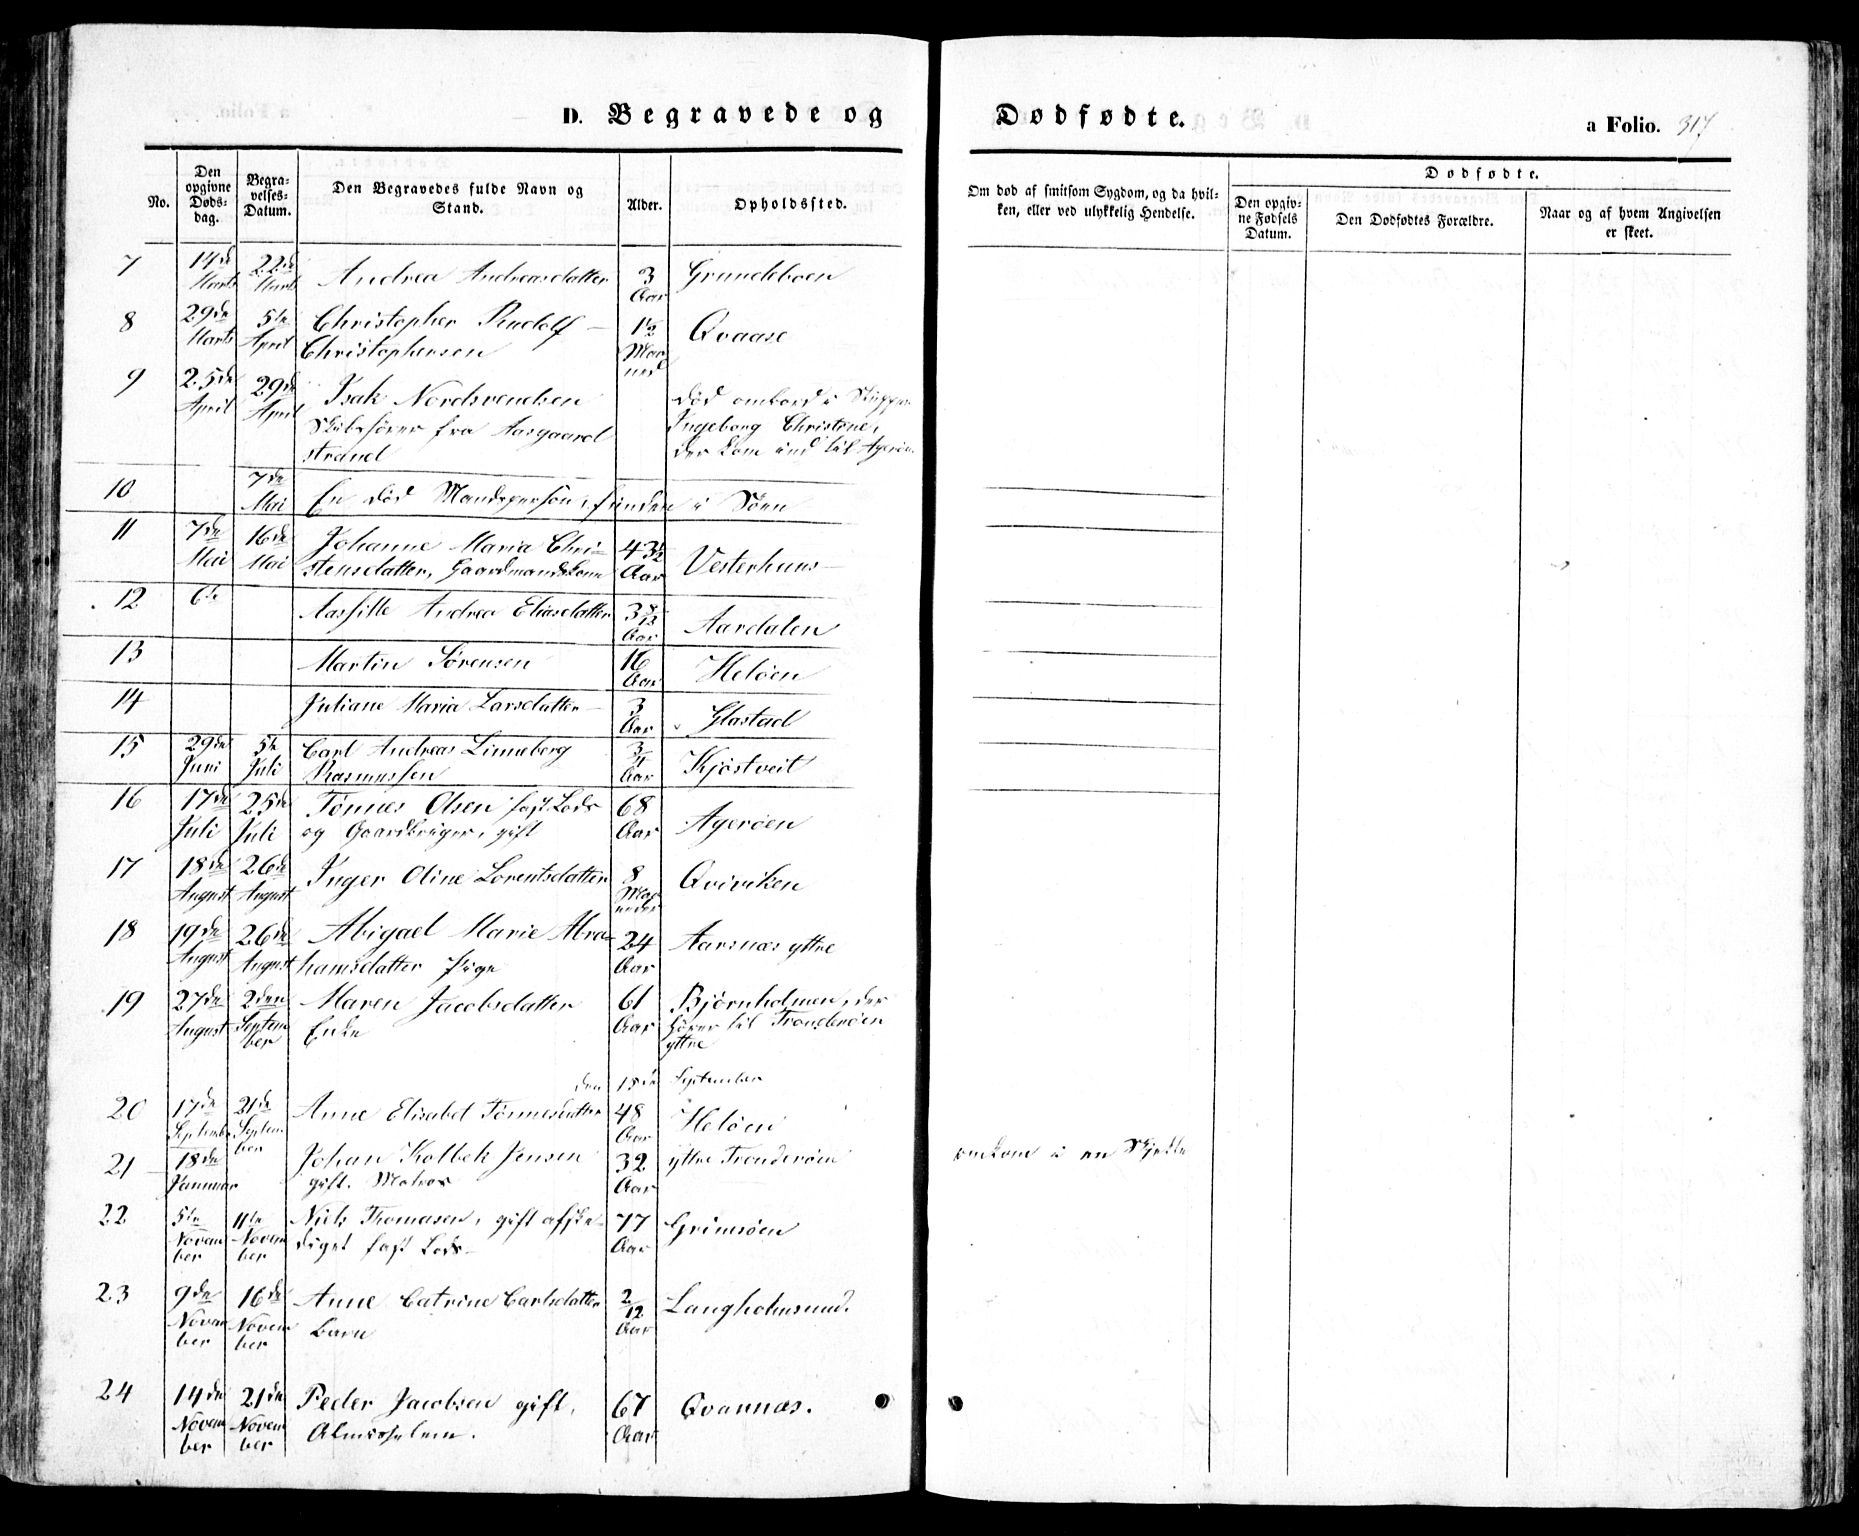 D. Begravede og Dødfødte.
a Folio. 317
No.
Den opgivne Døds-dag.
Begra-velses-Datum.
Den Begravedes fulde Navn og Stand.
Alder.
Opholdssted.
Om død af smitsom Sygdom, og da hvil-ken, eller ved ulykkelig Hendelse.
Dødfødte.
Den opgiv-ne Fødsels Datum.
Den Dødfødtes Forældre.
Naar og af hvem Angivelsen er skeet.
7 14de Marts 22de Marts Andrea Andreasdatter 3 Aar Grundeboen
8 29de Marts 5te April Christopher Rudolf Christophersen 1½ Maaned Qvaase
9 25de April 29de April Isak Nordsvendsen
Skibsfører fra Aasgaard
strand
død ombord i
Ingeborg Christine,
der kom ind til Agerøen
10 7de Mai En død Mandsperson, funden i Søen
11 7de Mai 16de Mai Johanne Maria Chri-
stensdatter, Gaardmandskone 43½ Aar Vesterhuus
12 6te Aasille Andrea Eliasdatter 3 8/12 Aar Aardalen
13 Martin Sørensen 16 Aar Heløen
14 Juliane Maria Larsdatter 3 Aar Glastad
15 29de Juni 5te Juli Carl Andreas Linneberg
Rasmussen 3/4 Aar Kjøstveit
16 17de Juli 25de Juli Tønnes Olsen fast Lods
og Gaardbruger, gift 68 Aar Agerøen
17 18de August 26de August Inger Oline Lorentsdatter 8 Maaneder Qviviken
18 19de August 26de August Abigael Marie Abra-
hamsdatter Pige 24 Aar Aarsnæs yttre
19 27de August 2den September Maren Jacobsdatter
Enke 61 Aar Bjørnholmen, der
hører til Tronderøen
yttre
den 15de September
20 17de September 21de September Anne Elisabet Tønnesdatter 48 Aar Heløen
21 18de Januar Johan Kolbek Jensen
gift. Matros 32 Aar yttre Tronderøen omkom i en Skjekte
22 5te November 11te November Niels Thomasen, gift afske-
diget fast Lods 77 Aar Grimsøen
23 9de November 16de November Anne Catrine Carlsdatter
Barn 2/12 Aar Langholmsund.
24 14de November 21de November Peder Jacobsen gift,
Almisselem. 67 Aar Qvannæs.